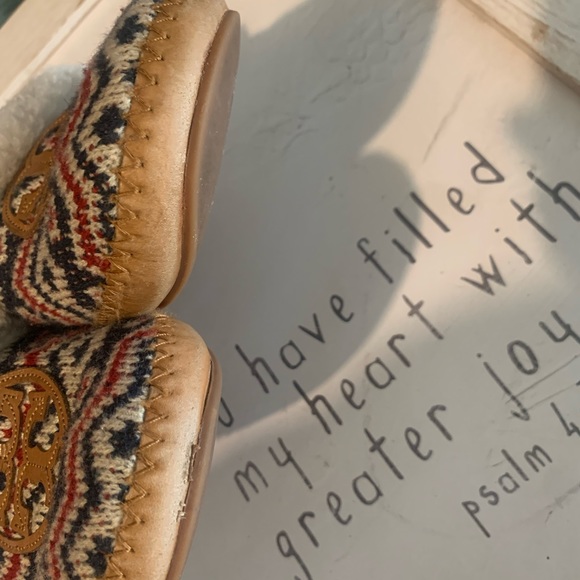 have filled
my heart with
greater joy
psalm 4